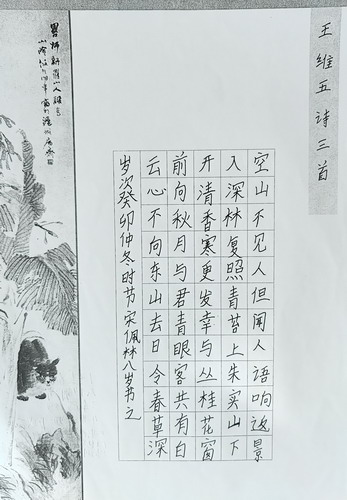 王维五诗三首
空山不见人但闻人语响返景
入深林复照青苔上朱实山下
开清香寒更发幸与丛桂花窗
前向秋月与君青眼客共有白
云心不向东山去日令春草深
岁次癸卯仲冬时节宋佩林八岁书之